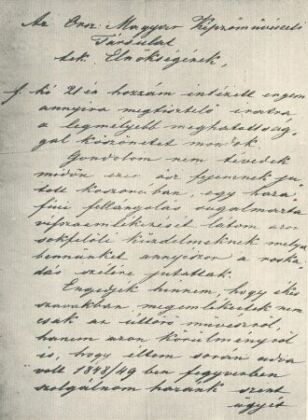 Az Orsz. Magyar Képzőművészeti
Társulat
tek. Elnökségének,
f. hó 21-én hozzám intézett engem
annyira megtisztelő iratra
a legmélyebb meghatottság-
gal köszönetet mondok.
Gondolom nem tévedek
midőn ezen ősz fejemnek ju-
tott koszorúban, egy haza-
fias fellángolás sugalmazta
visszaemlékezését látom azon
sokféle küzdelmeknek melyek
bennünket annyiszor a
szélére juttattak.
Engedjék hinnem, hogy
szavakban megemlékeztek nem
csak az úttörő művészről,
hanem azon körülményről
is, hogy éltem során adva
volt 1848/49 ben fegyveresen
szolgálnom hazánk szent
ügyét